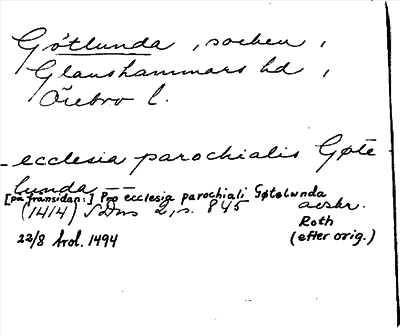 Götlunda, socken,
Glanshammars hd,
Örebro l.
- ecclesia parochialis Gøte-
lunda --
[på framsidan:] Pro ecclesia parochiali Gøtolunda
(1414) SDns 2, s. 845 avskr.
Roth
22/8 Arol. 1494 (efter orig.)